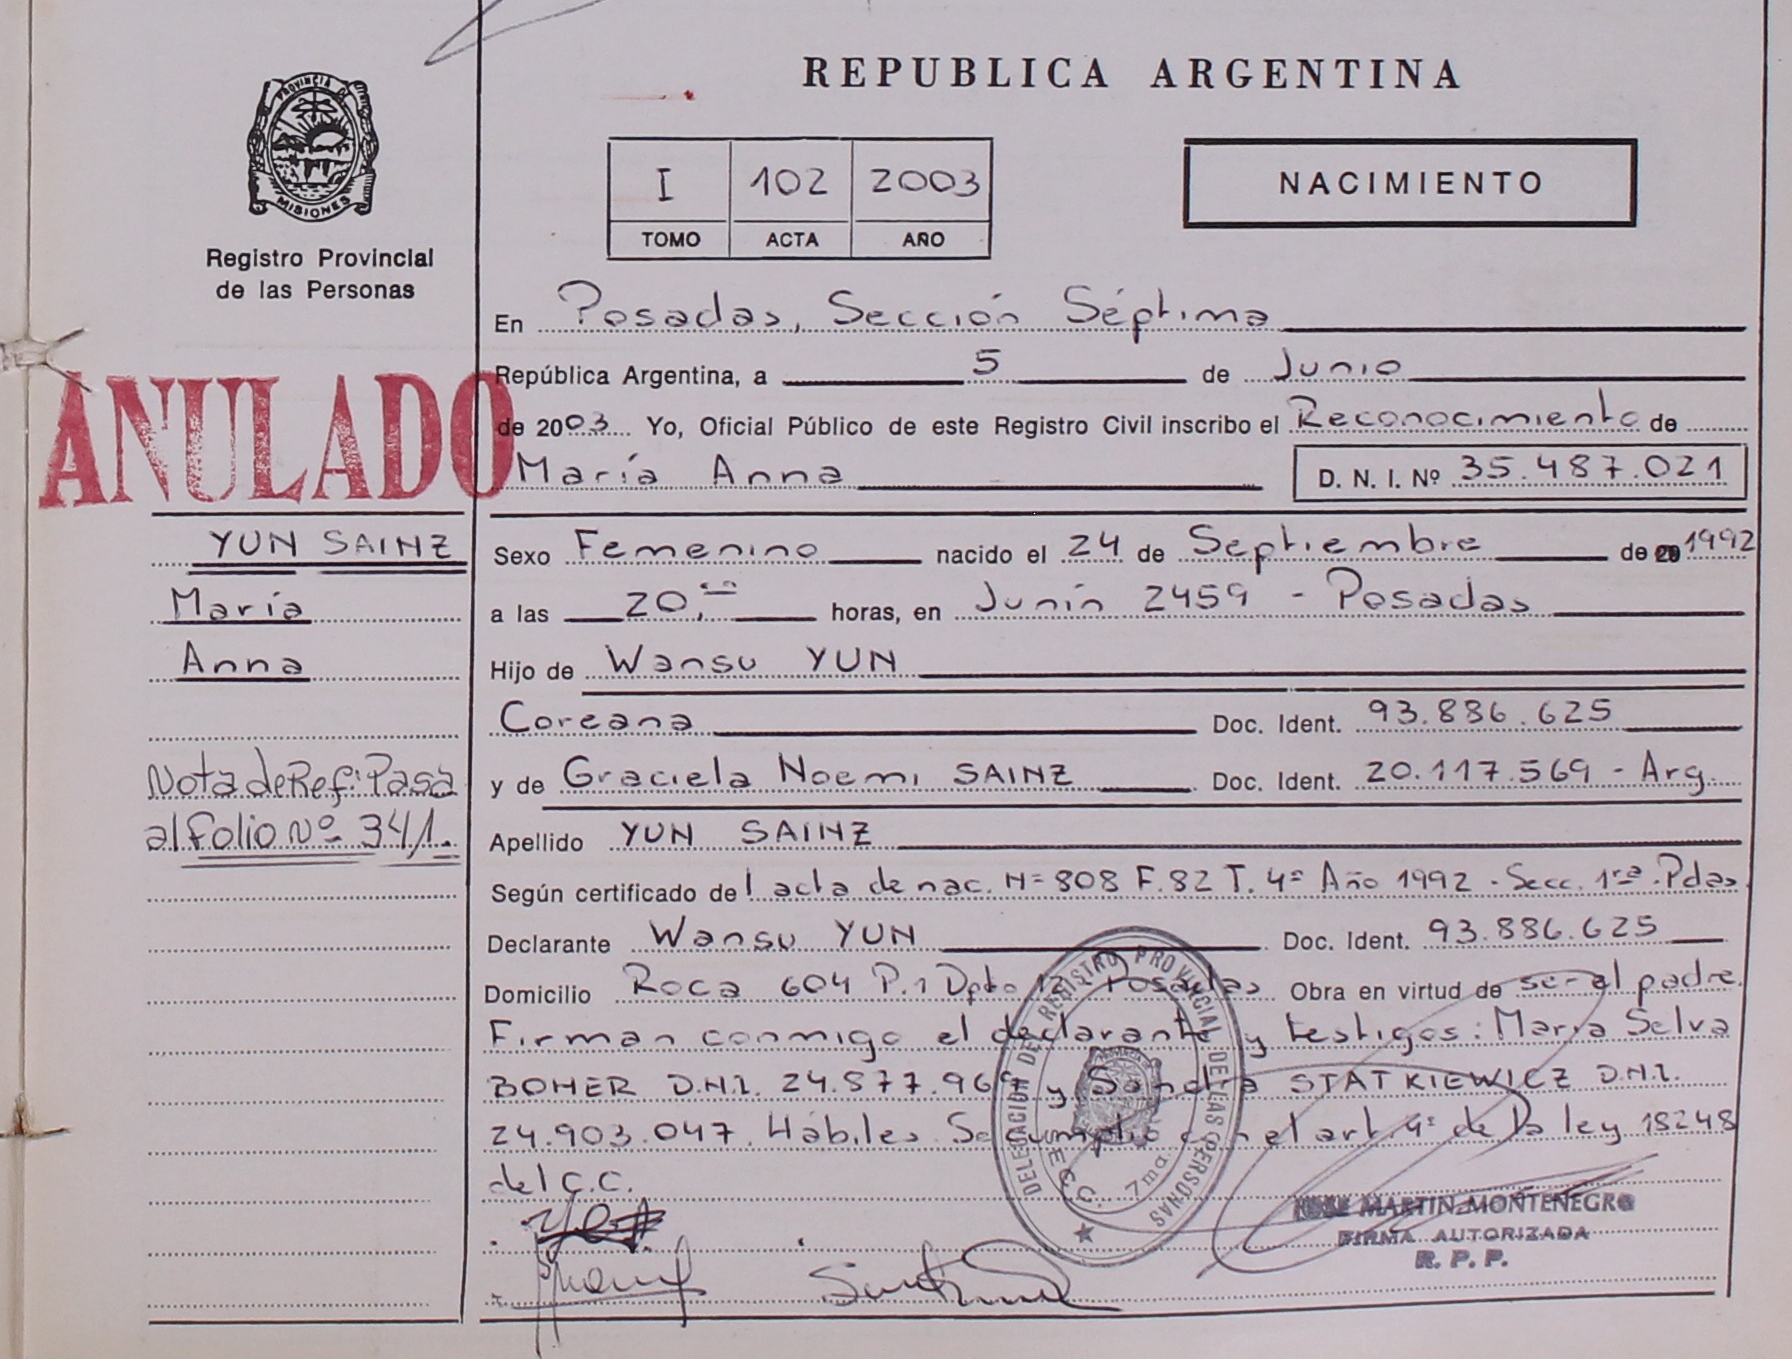 PROVINCIA DE
MISIONES
Registro Provincial
de las Personas
ANULADO
YUN SAINZ
María
Anna
Nota de Ref: Pasa
al folio Nº 341.
REPUBLICA ARGENTINA
I 102 2003
TOMO ACTA AÑO
NACIMIENTO
En Posadas, Sección Séptima
República Argentina, a 5 de Junio
de 2003 Yo, Oficial Público de este Registro Civil inscribo el Reconocimiento de
María Anna D. N. I. Nº 35.487.021
Sexo Femenino nacido el 24 de Septiembre de 20 1992
a las 20,00 horas, en Junín 2459 - Posadas
Hijo de Wansu YUN
Coreana Doc. Ident. 93.886.625
y de Graciela Noemi SAINZ Doc. Ident. 20.117.569 - Arg.
Apellido YUN SAINZ
Según certificado de l acta de nac. N= 808 F. 82 T. 4º Año 1992 - Secc. 1ra. Pdas.
Declarante Wansu YUN Doc. Ident. 93.886.625
Domicilio Roca 604 P.1 Dpto 12 Posadas Obra en virtud de ser el padre.
Firman conmigo el declarante y testigos: Maria Selva
BOHER D.N.I. 24.577.969 y Sandra STATKIEWICZ D.N.I.
24.903.047. Hábiles. Se cumplió con el art. 4º de la ley 18248
del C.C.
DELEGACION DEL REGISTRO PROVINCIAL DE LAS PERSONAS
SECC. 7ma.
MARTIN MONTENEGRO
FIRMA AUTORIZADA
R. P. P.